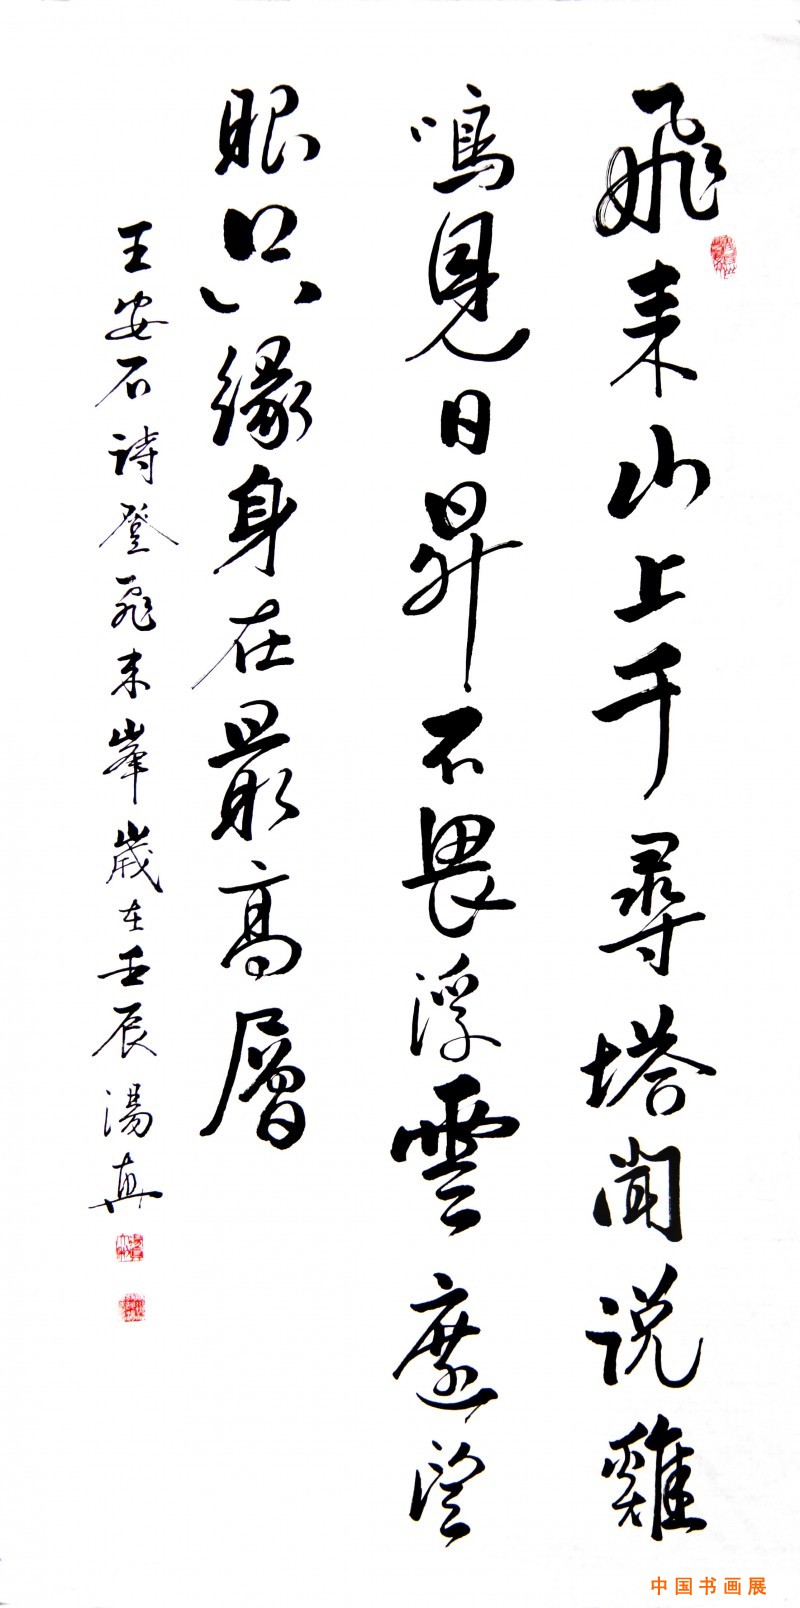 飛来山上千尋塔聞说雞
鳴見日昇不畏浮雲遮望
眼只緣身在最高層
王安石詩登飛来峯歲在壬辰湯真
中国书画展